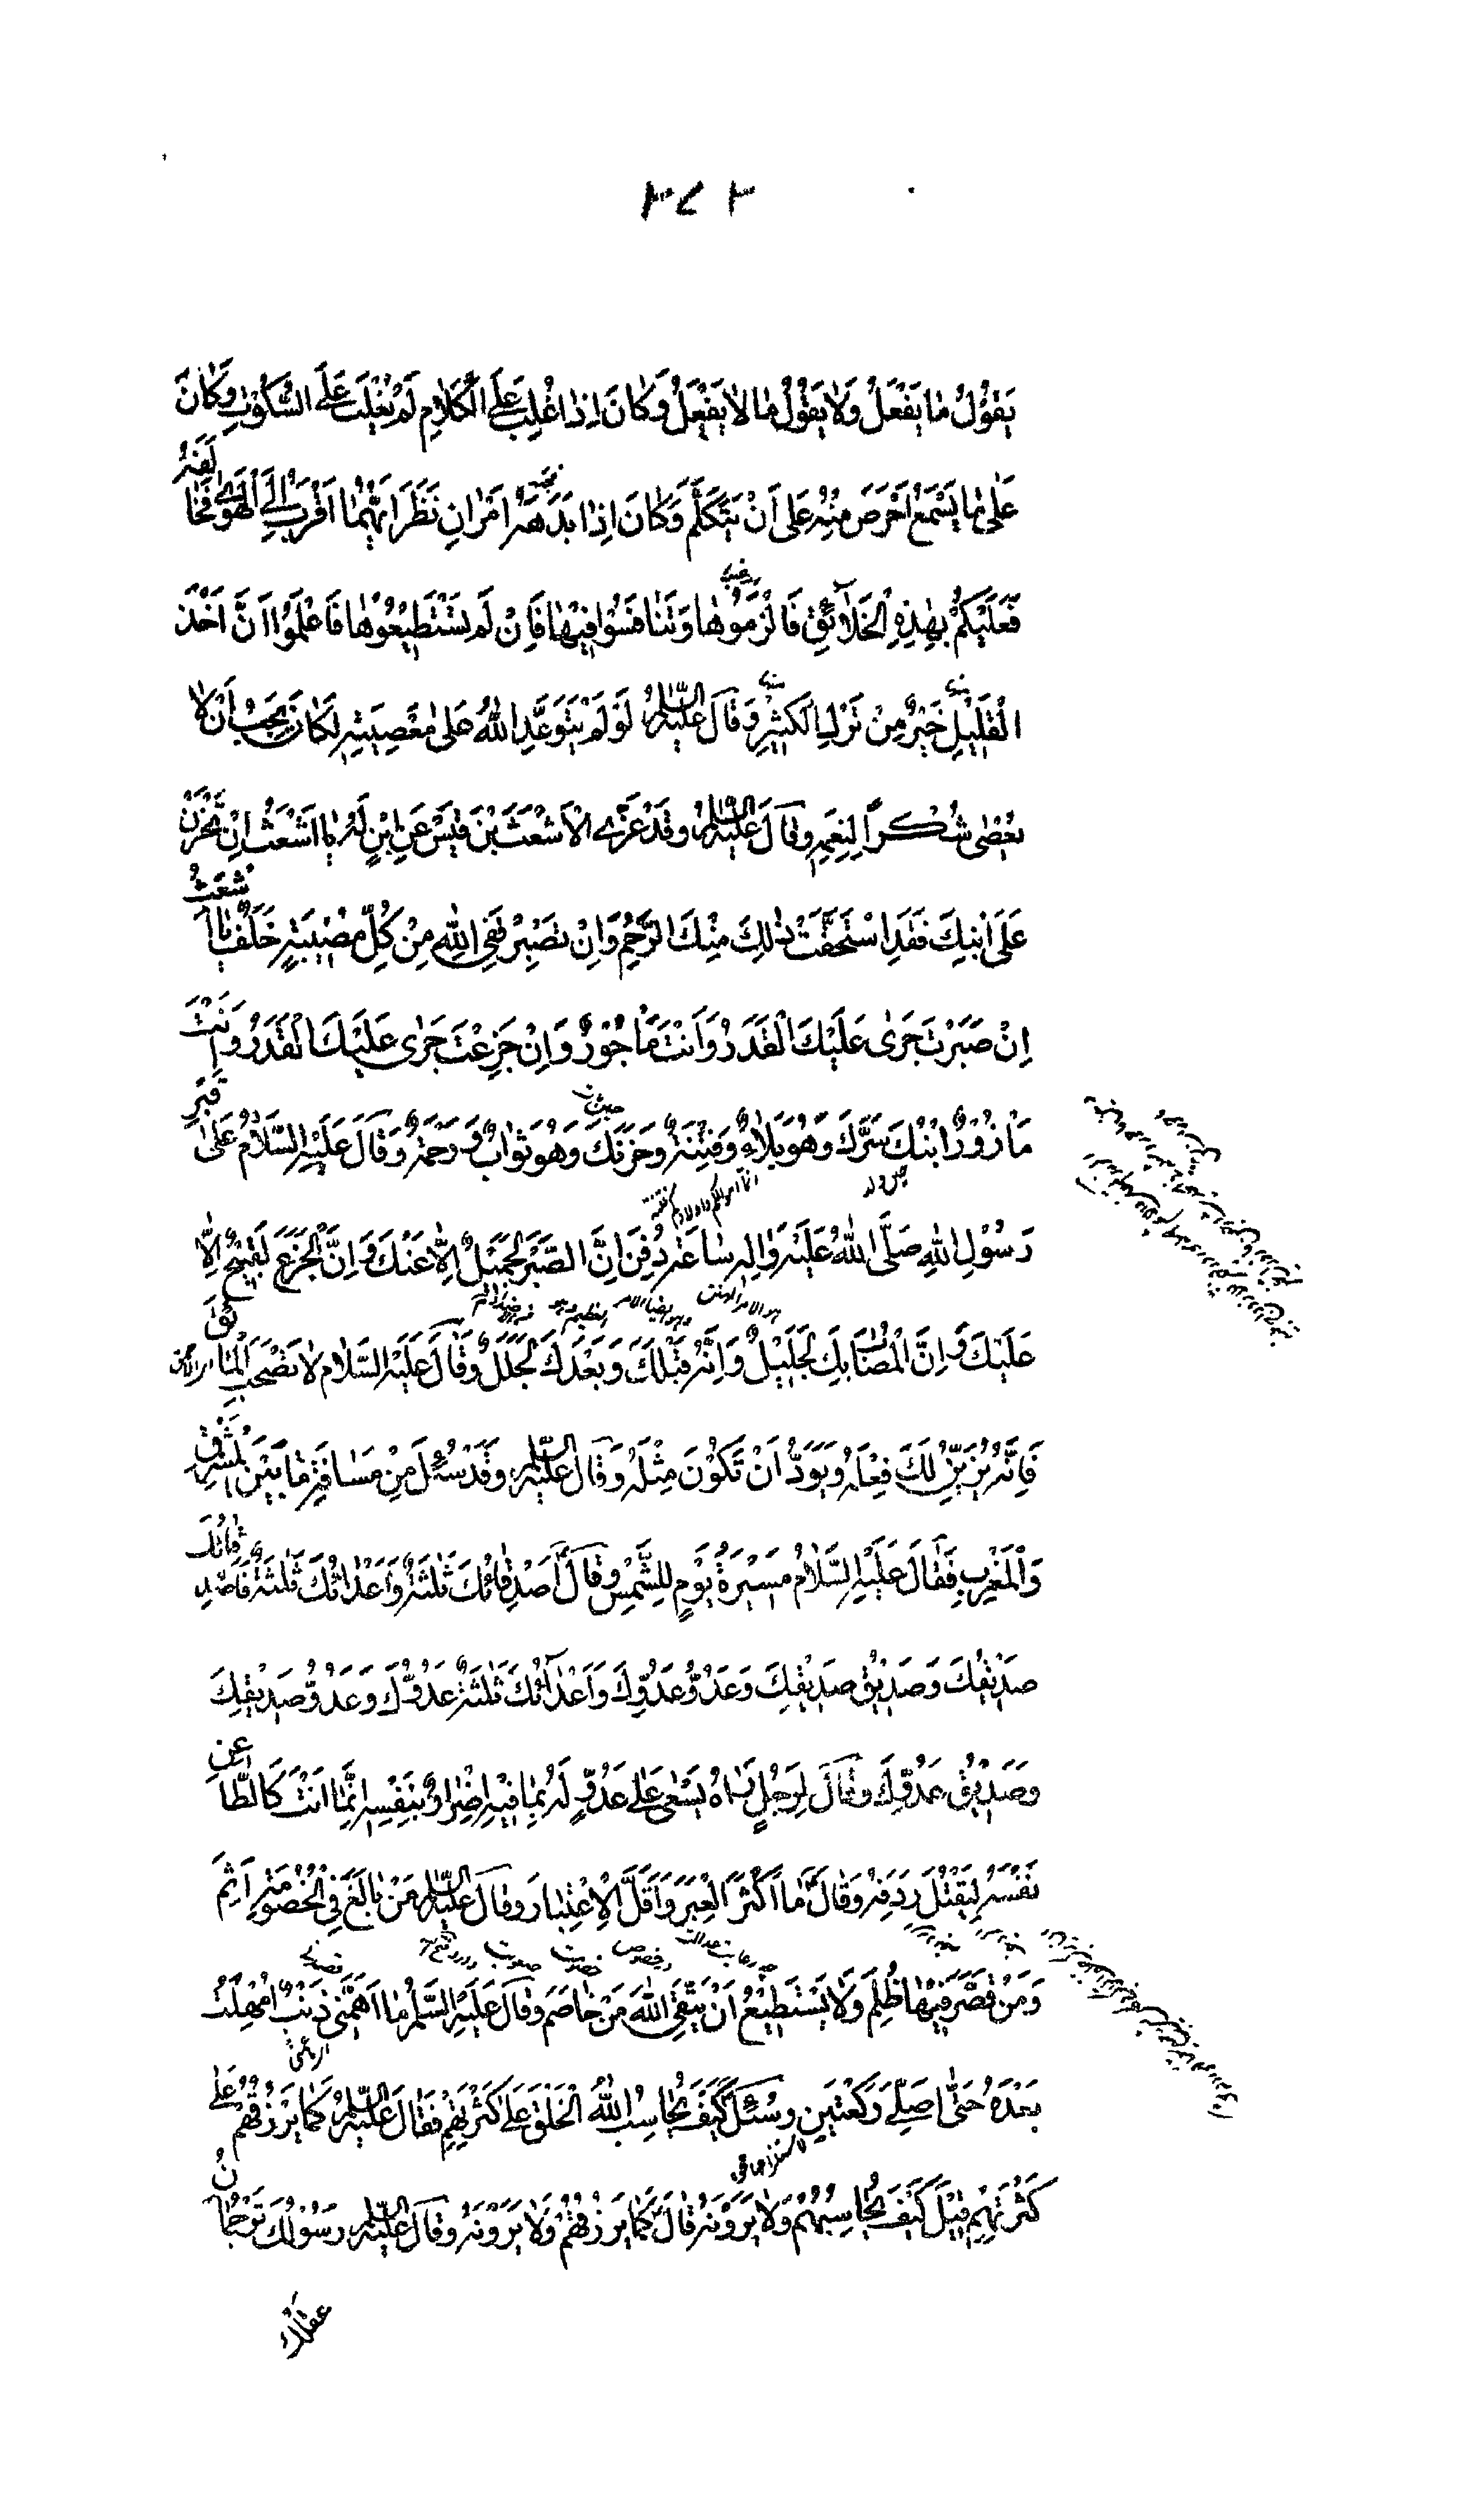 ٣٧٢
يَقُوْلُ مٰا يَفْعَلُ وَلٰا يَقُوْلُ مٰا لٰا يَفْعَلُ وَكٰانَ اِذٰا غُلِبَ عَلَى الْكَلٰامِ لَمْ يُغْلَبْ عَلَى السُّكُوْتِ وَكٰانَ
عَلٰى مٰا يَسْمَعُ اَحْرَصَ مِنْهُ عَلٰى اَنْ يَتَكَلَّمَ وَكٰانَ اِذٰا بَدَهَهُ اَمْرٰانِ نَظَرَ اَيُّهُمٰا اَقْرَبُ اِلَى الْهَوٰى فَخٰالَفَهُ
فَعَلَيْكُمْ بِهٰذِهِ الْخَلٰائِقِ فَالْزَمُوْهٰا وَتَنٰافَسُوْا فِيْهٰا فَاِنْ لَمْ تَسْتَطِيْعُوْهٰا فَاعْلَمُوْا اَنَّ اَخْذَ
الْقَلِيْلِ خَيْرٌ مِنْ تَرْكِ الْكَثِيْرِ وَقٰالَ عَلَيْهِ السَّلٰامُ لَوْ لَمْ يَتَوَعَّدِ اللهُ عَلٰى مَعْصِيَتِهِ لَكٰانَ يَجِبُ اَنْ لٰا
يُعْصٰى شُكْرًا لِنِعَمِهِ وَقٰالَ عَلَيْهِ السَّلٰامُ وَقَدْ عَزَّى الْاَشْعَثَ بْنَ قَيْسٍ عَنِ ابْنٍ لَهُ يٰا اَشْعَثُ اِنْ تَحْزَنْ
عَلَى ابْنِكَ فَقَدِ اسْتَحَقَّتْ ذٰلِكَ مِنْكَ الرَّحِمُ وَاِنْ تَصْبِرْ فَفِي اللهِ مِنْ كُلِّ مُصِيْبَةٍ خَلَفٌ يٰا اَشْعَثُ
اِنْ صَبَرْتَ جَرٰى عَلَيْكَ الْقَدَرُ وَاَنْتَ مَأْجُوْرٌ وَاِنْ جَزِعْتَ جَرٰى عَلَيْكَ الْقَدَرُ وَاَنْتَ
مَأْزُوْرٌ ابْنُكَ سَرَّكَ وَهُوَ بَلٰاءٌ وَفِتْنَةٌ وَحَزَنَكَ وَهُوَ ثَوٰابٌ وَرَحْمَةٌ وَقٰالَ عَلَيْهِ السَّلٰامُ عَلٰى قَبْرِ
رَسُوْلِ اللهِ صَلَّى اللهُ عَلَيْهِ وَاٰلِهِ سٰاعَةَ دُفِنَ اِنَّ الصَّبْرَ لَجَمِيْلٌ اِلّٰا عَنْكَ وَاِنَّ الْجَزَعَ لَقَبِيْحٌ اِلّٰا
عَلَيْكَ وَاِنَّ الْمُصٰابَ بِكَ لَجَلِيْلٌ وَاِنَّهُ قَبْلَكَ وَبَعْدَكَ لَجَلَلٌ وَقٰالَ عَلَيْهِ السَّلٰامُ لٰا تَصْحَبِ الْمٰائِقَ
فَاِنَّهُ يُزَيِّنُ لَكَ فِعْلَهُ وَيَوَدُّ اَنْ تَكُوْنَ مِثْلَهُ وَقٰالَ عَلَيْهِ السَّلٰامُ وَقَدْ سُئِلَ مِنْ مَسٰافَةِ مٰا بَيْنَ الْمَشْرِقِ
وَالْمَغْرِبِ فَقٰالَ عَلَيْهِ السَّلٰامُ مَسِيْرَةُ يَوْمٍ لِلشَّمْسِ وَقٰالَ اَصْدِقٰاؤُكَ ثَلٰثَةٌ وَاَعْدٰاؤُكَ ثَلٰثَةٌ فَاَصْدِقٰاؤُكَ
صَدِيْقُكَ وَصَدِيْقُ صَدِيْقِكَ وَعَدُوُّ عَدُوِّكَ وَاَعْدٰاؤُكَ ثَلٰثَةٌ عَدُوُّكَ وَعَدُوُّ صَدِيْقِكَ
وَصَدِيْقُ عَدُوِّكَ وَقٰالَ لِرَجُلٍ رَاٰهُ يَسْعٰى عَلٰى عَدُوٍّ لَهُ بِمٰا فِيْهِ اِضْرٰارٌ بِنَفْسِهِ اِنَّمٰا اَنْتَ كَالطّٰاعِنِ
نَفْسَهُ لِيَقْتُلَ رِدْفَهُ وَقٰالَ مٰا اَكْثَرَ الْعِبَرَ وَاَقَلَّ الْاِعْتِبٰارَ وَقٰالَ عَلَيْهِ السَّلٰامُ مَنْ بٰالَغَ فِي الْخُصُوْمَةِ اَثِمَ
وَمَنْ قَصَّرَ فِيْهٰا ظُلِمَ وَلٰا يَسْتَطِيْعُ اَنْ يَتَّقِيَ اللهَ مَنْ خٰاصَمَ وَقٰالَ عَلَيْهِ السَّلٰامُ مٰا اَهَمَّنِيْ ذَنْبٌ اُمْهِلْتُ
بَعْدَهُ حَتّٰى اُصَلِّيَ رَكْعَتَيْنِ وَسُئِلَ كَيْفَ يُحٰاسِبُ اللهُ الْخَلْقَ عَلٰى كَثْرَتِهِمْ فَقٰالَ عَلَيْهِ السَّلٰامُ كَمٰا يَرْزُقُهُمْ عَلٰى
كَثْرَتِهِمْ قِيْلَ كَيْفَ يُحٰاسِبُهُمْ وَلٰا يَرَوْنَهُ قٰالَ كَمٰا يَرْزُقُهُمْ وَلٰا يَرَوْنَهُ وَقٰالَ عَلَيْهِ السَّلٰامُ رَسُوْلُكَ تَرْجُمٰانُ
عَقْلِكَ